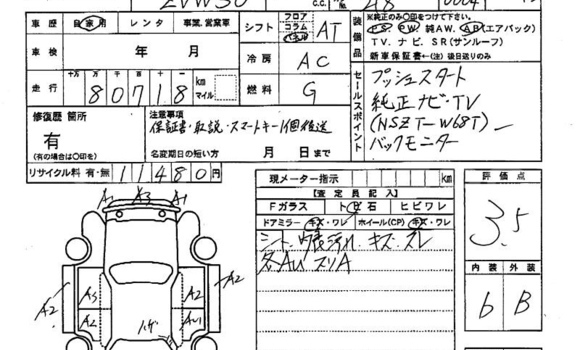 ZVW30 C.C. 48 0004
車歴 自家用 レンタ 事業、営業車
シフト フロア コラム インパネ AT
装備品 ※純正のみ○印をつけて下さい。
PS. PW. 純AW. AB(エアバック)
TV. ナビ. SR(サンルーフ)
新車保証書←(注)後日送りのみ
車検 年 月
冷房 AC
走行 十万 万 千 百 十 80718 km マイル
燃料 G
セールスポイント プッシュスタート
純正ナビ・TV
(NSZT-W68T)
バックモニター
修復歴 箇所
有
(有の場合は○印を)
注意事項
保証書・取説・スマートキー1個後送
名変期日の短い方 月 日まで
リサイクル料 有・無 11480円
現メーター指示 km
【査定員記入】
Fガラス トビ石 ヒビワレ
ドアミラー キズ・ワレ ホイール(CP) キズ・ワレ
シート 汚れ キズ・スレ
各AU スリA
評価点
3.5
内装 外装
6 B
A1 A3 A1
A3 A2
A2 A2
A2 AU1